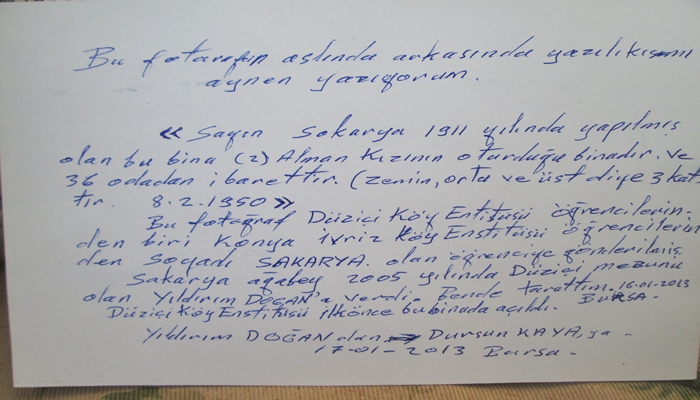 Bu fotarafın aslında arkasında yazılıkısmını
aynen yazıyorum.
« Sayın Sakarya 1911 yılında yapılmış
olan bu bina (2) Alman Kızının oturduğu binadır. ve
36 odadan ibarettir. (zemin, orta ve üst diye 3 kat
tır. 8.2.1950 »
Bu fotoğraf Düziçi Köy Entitüsü öğrencilerin-
den biri Konya İvriz Köy Enstitüsü öğrencilerin
den Soyadı SAKARYA. olan öğrenciye gönderilmiş.
Sakarya ağabey 2005 yılında Düziçi mezunu
olan Yıldırım DOĞAN'a verdi. Bende tarattım. 16-01-2013
BURSA.
Düziçi Köy Enstitüsü ilkönce bu binada açıldı.
Yıldırım DOĞAN dan → Dursun KAYA, ya.
17-01-2013 Bursa.